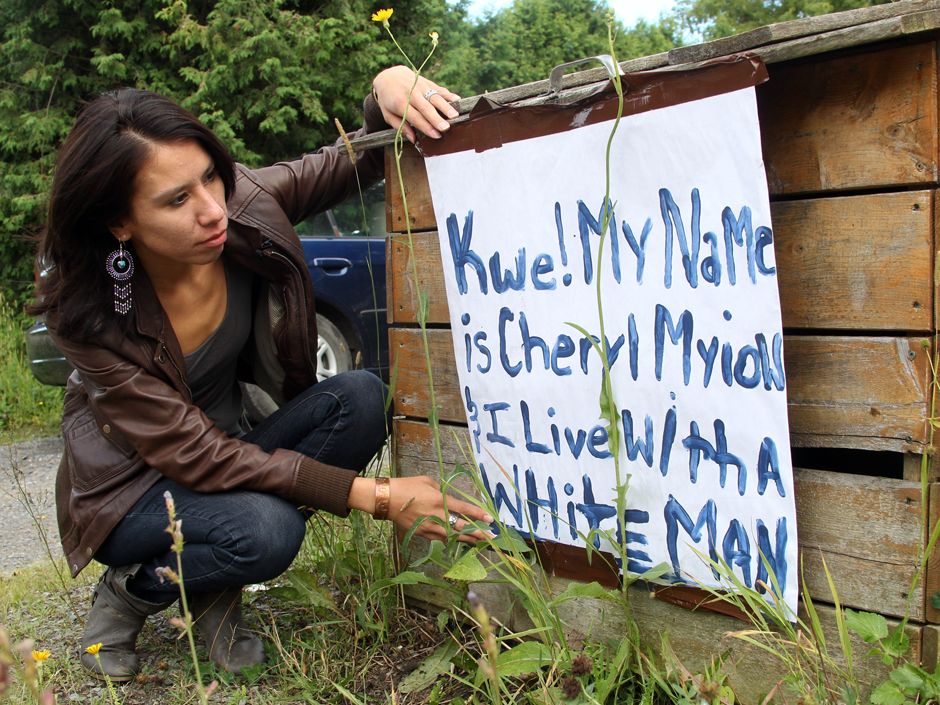 Kwe! My Name
is Cheryl Myiow
& I Live With A
WHite Man